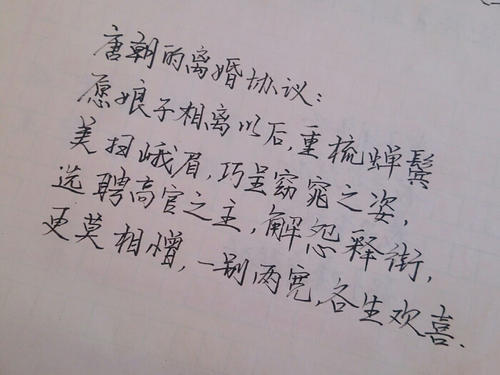 唐朝的离婚协议:
愿娘子相离以后,重梳蝉鬓
美扫峨眉,巧呈窈窕之姿,
选聘高官之主,解怨释街,
更莫相憎,一别两宽,各生欢喜.